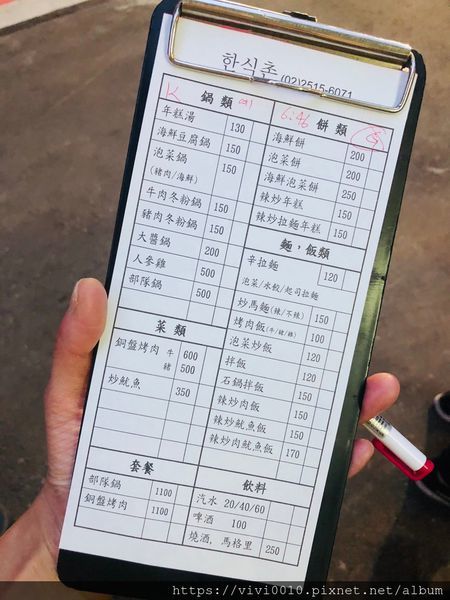 한식촌 (02)2515-6071
鍋類
年糕湯 130
海鮮豆腐鍋 150
泡菜鍋 150
(豬肉/海鮮)
牛肉冬粉鍋 150
豬肉冬粉鍋 150
大醬鍋 200
人參雞 500
部隊鍋 500
菜類
銅盤烤肉 牛 600
豬 500
炒魷魚 350
套餐
部隊鍋 1100
銅盤烤肉 1100
6:46 餅類
海鮮餅 200
泡菜餅 200
海鮮泡菜餅 250
辣炒年糕 150
辣炒拉麵年糕 150
麵，飯類
辛拉麵 120
泡菜/水餃/起司拉麵
炒馬麵(辣/不辣) 150
烤肉飯(牛/豬/雞) 100
泡菜炒飯 120
拌飯 120
石鍋拌飯 150
辣炒肉飯 150
辣炒魷魚飯 150
辣炒肉魷魚飯 170
飲料
汽水 20/40/60
啤酒 100
燒酒，馬格里 250
https://vivi0010.pixnet.net/album